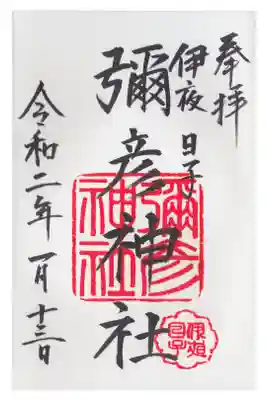 奉拝
伊夜日子
彌彦神社
令和二年一月十三日
彌彦神社